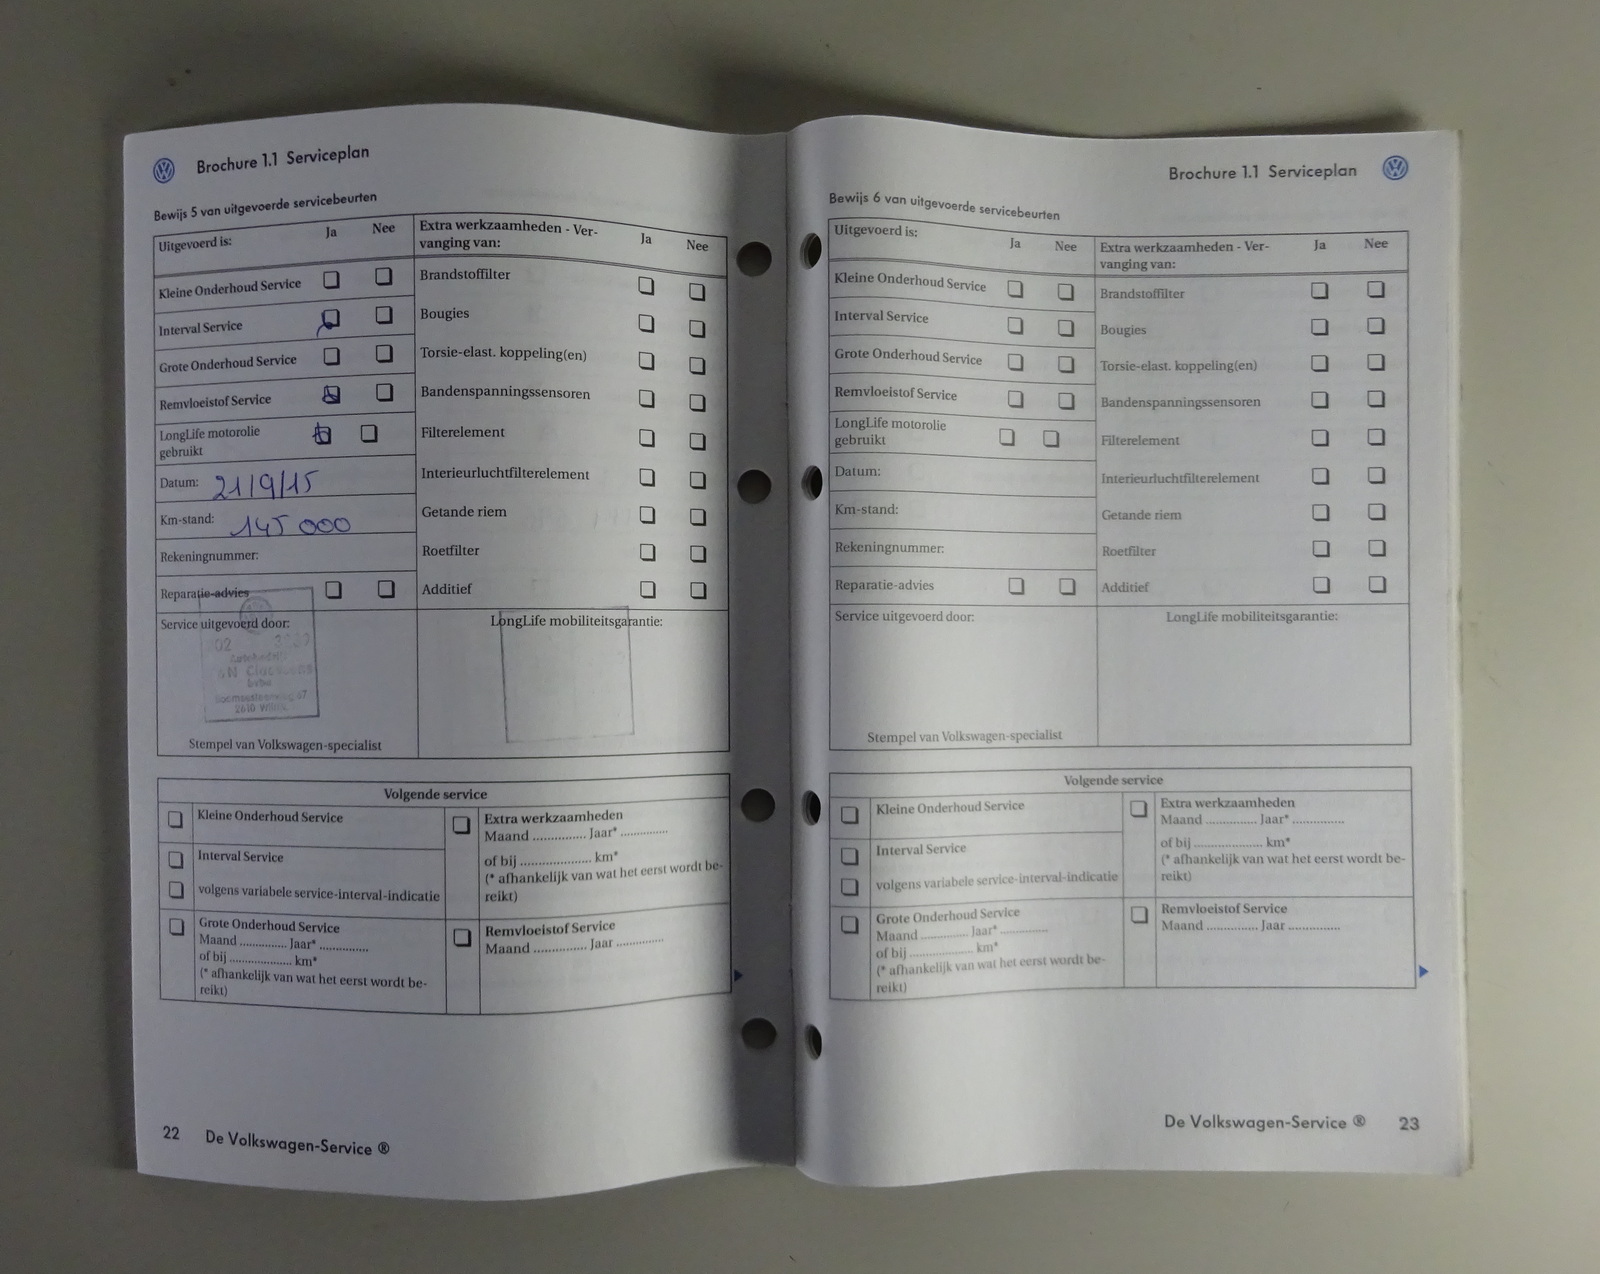 Brochure 1.1 Serviceplan
Bewijs 5 van uitgevoerde servicebeurten
Uitgevoerd is: Ja Nee
Kleine Onderhoud Service
Interval Service
Grote Onderhoud Service
Remvloeistof Service
LongLife motorolie
gebruikt
Datum: 21/9/15
Km-stand: 145 000
Rekeningnummer:
Reparatie-advies
Extra werkzaamheden - Ver-
vanging van: Ja Nee
Brandstoffilter
Bougies
Torsie-elast. koppeling(en)
Bandenspanningssensoren
Filterelement
Interieurluchtfilterelement
Getande riem
Roetfilter
Additief
Service uitgevoerd door:
02
2610
Stempel van Volkswagen-specialist
LongLife mobiliteitsgarantie:
Volgende service
Kleine Onderhoud Service
Interval Service
volgens variabele service-interval-indicatie
Grote Onderhoud Service
Maand .............. Jaar* ..............
of bij ................... km*
(* afhankelijk van wat het eerst wordt be-
reikt)
Extra werkzaamheden
Maand ............... Jaar* ..............
of bij ..................... km*
(* afhankelijk van wat het eerst wordt be-
reikt)
Remvloeistof Service
Maand ............... Jaar ..............
22 De Volkswagen-Service ®
Brochure 1.1 Serviceplan
Bewijs 6 van uitgevoerde servicebeurten
Uitgevoerd is: Ja Nee
Kleine Onderhoud Service
Interval Service
Grote Onderhoud Service
Remvloeistof Service
LongLife motorolie
gebruikt
Datum:
Km-stand:
Rekeningnummer:
Reparatie-advies
Extra werkzaamheden - Ver-
vanging van: Ja Nee
Brandstoffilter
Bougies
Torsie-elast. koppeling(en)
Bandenspanningssensoren
Filterelement
Interieurluchtfilterelement
Getande riem
Roetfilter
Additief
Service uitgevoerd door:
Stempel van Volkswagen-specialist
LongLife mobiliteitsgarantie:
Volgende service
Kleine Onderhoud Service
Interval Service
volgens variabele service-interval-indicatie
Grote Onderhoud Service
Maand .............. Jaar* ..............
of bij ................... km*
(* afhankelijk van wat het eerst wordt be-
reikt)
Extra werkzaamheden
Maand ............... Jaar* ...............
of bij ..................... km*
(* afhankelijk van wat het eerst wordt be-
reikt)
Remvloeistof Service
Maand ............... Jaar ...............
De Volkswagen-Service ® 23